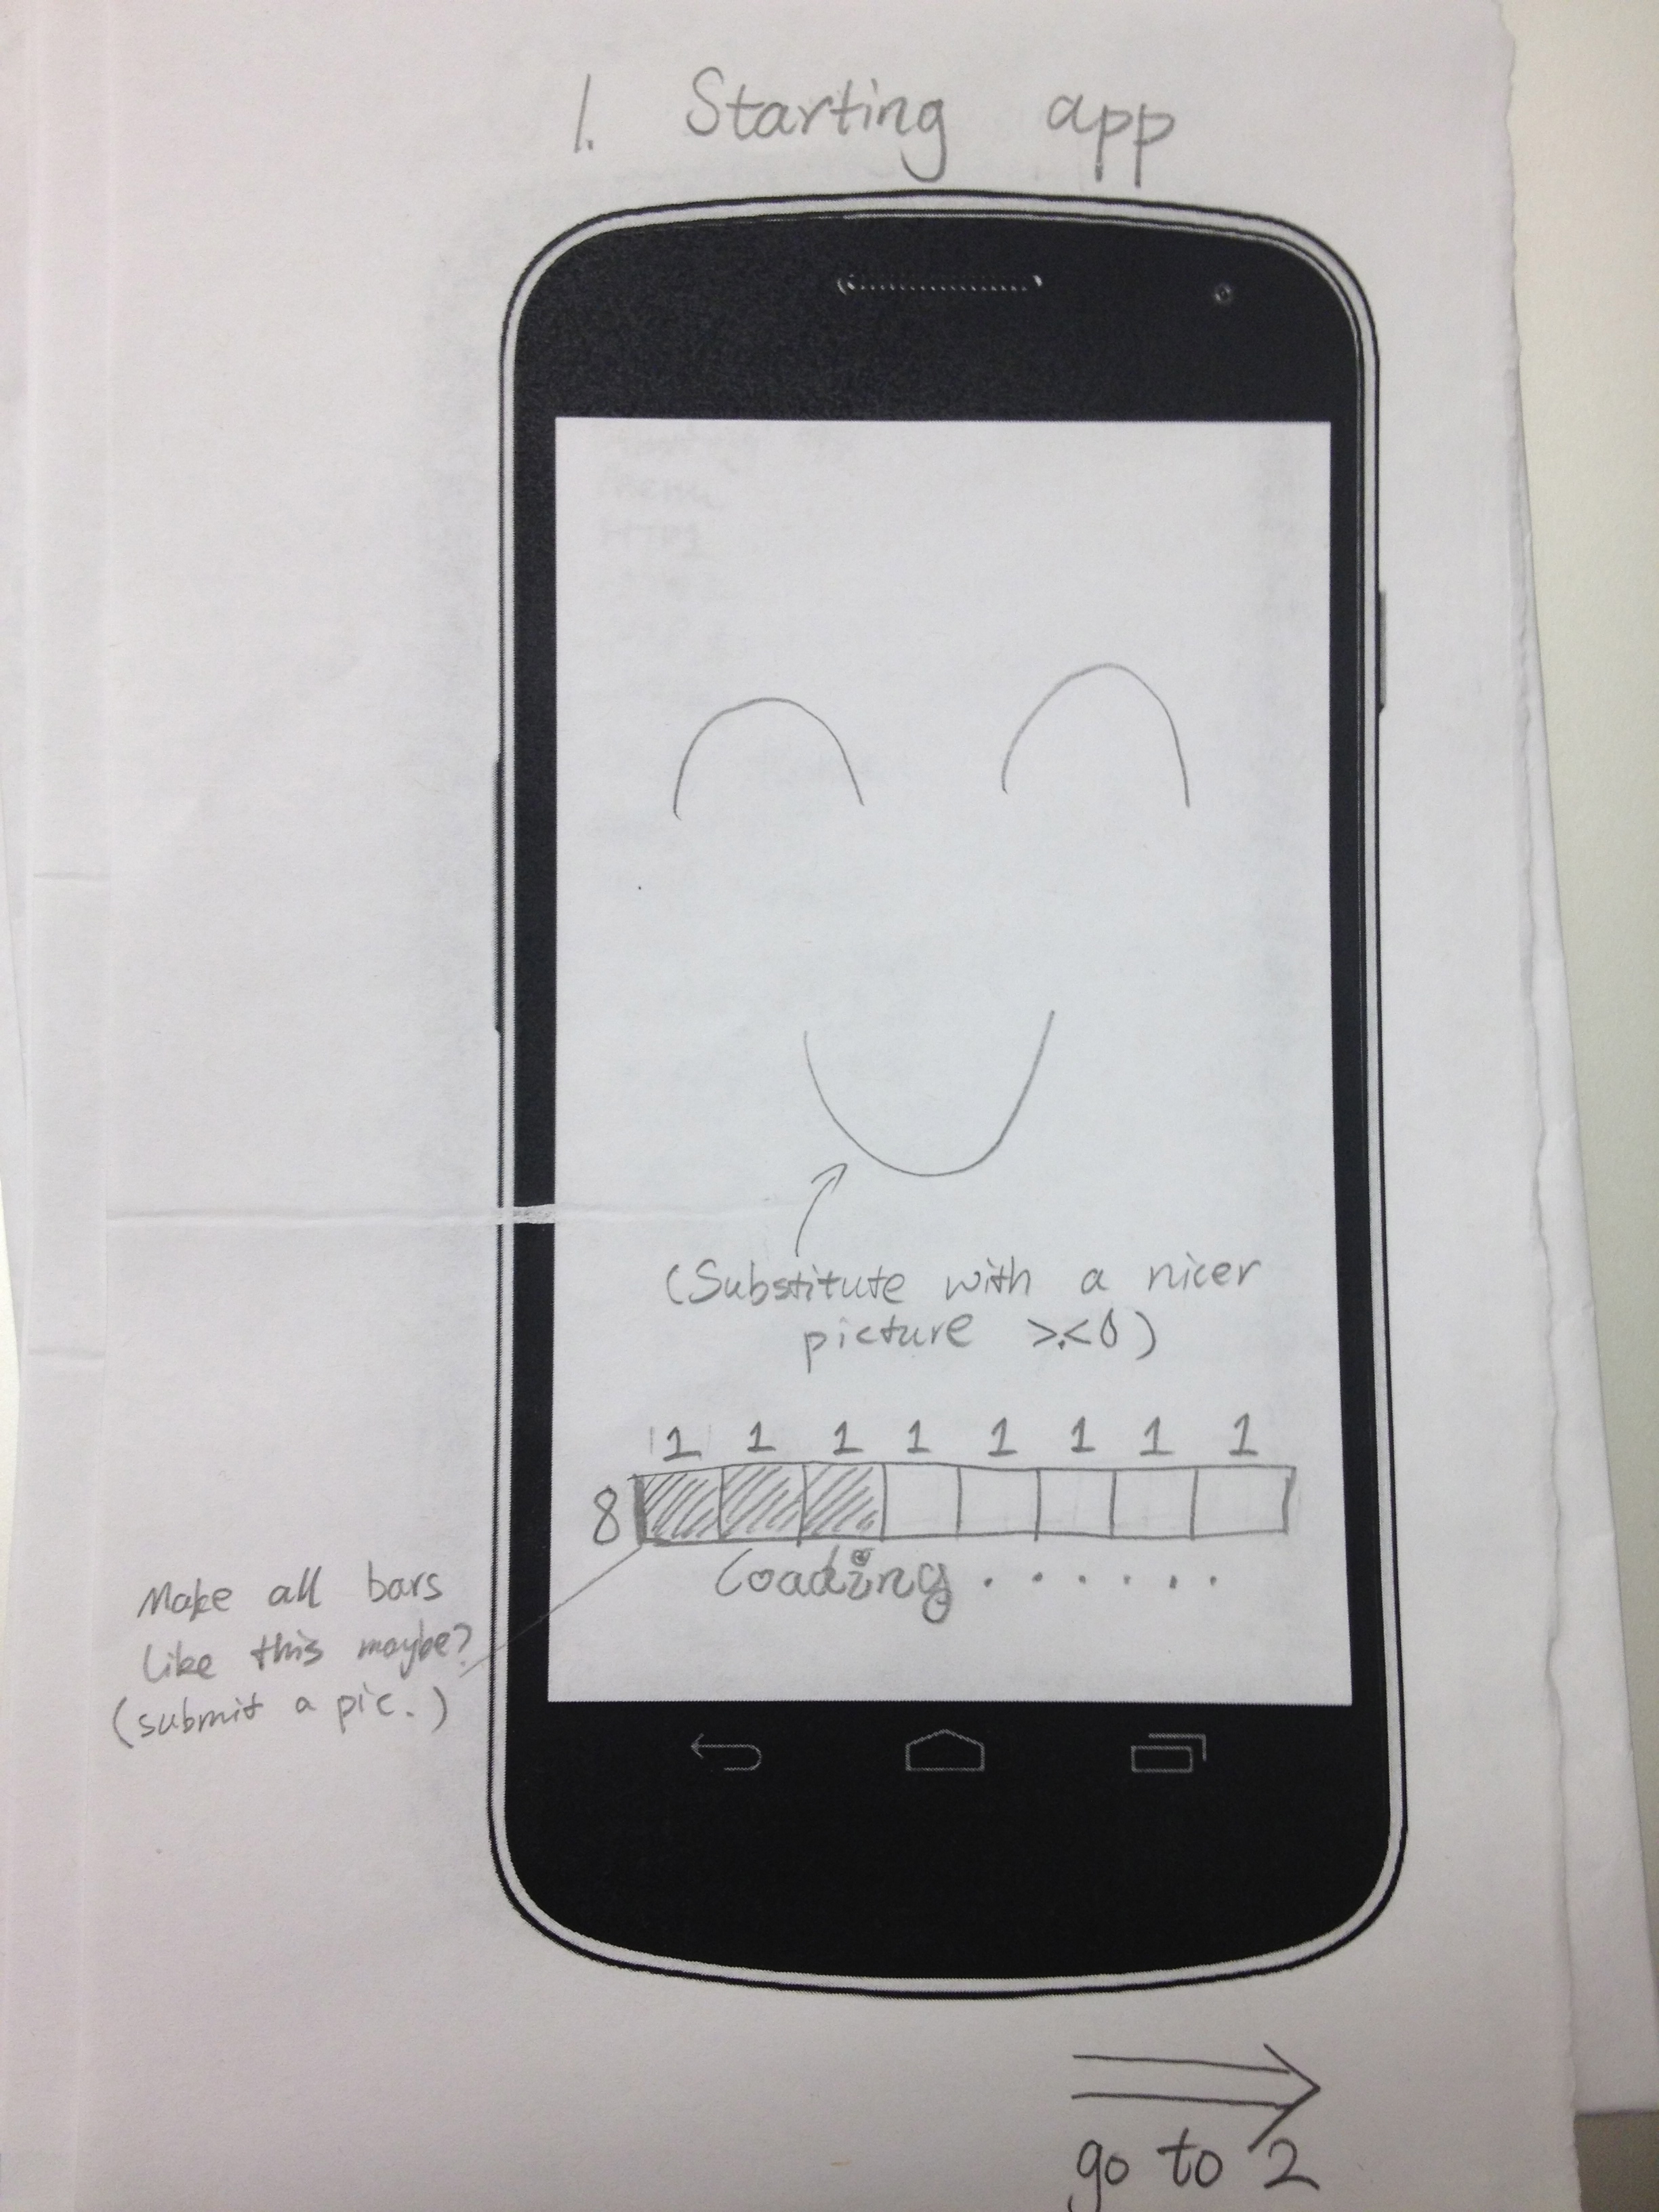 1. Starting app
(Substitute with a nicer
picture >.<0)
1 1 1 1 1 1 1 1
8
Loading.......
Make all bars
like this maybe?
(submit a pic.)
go to 2